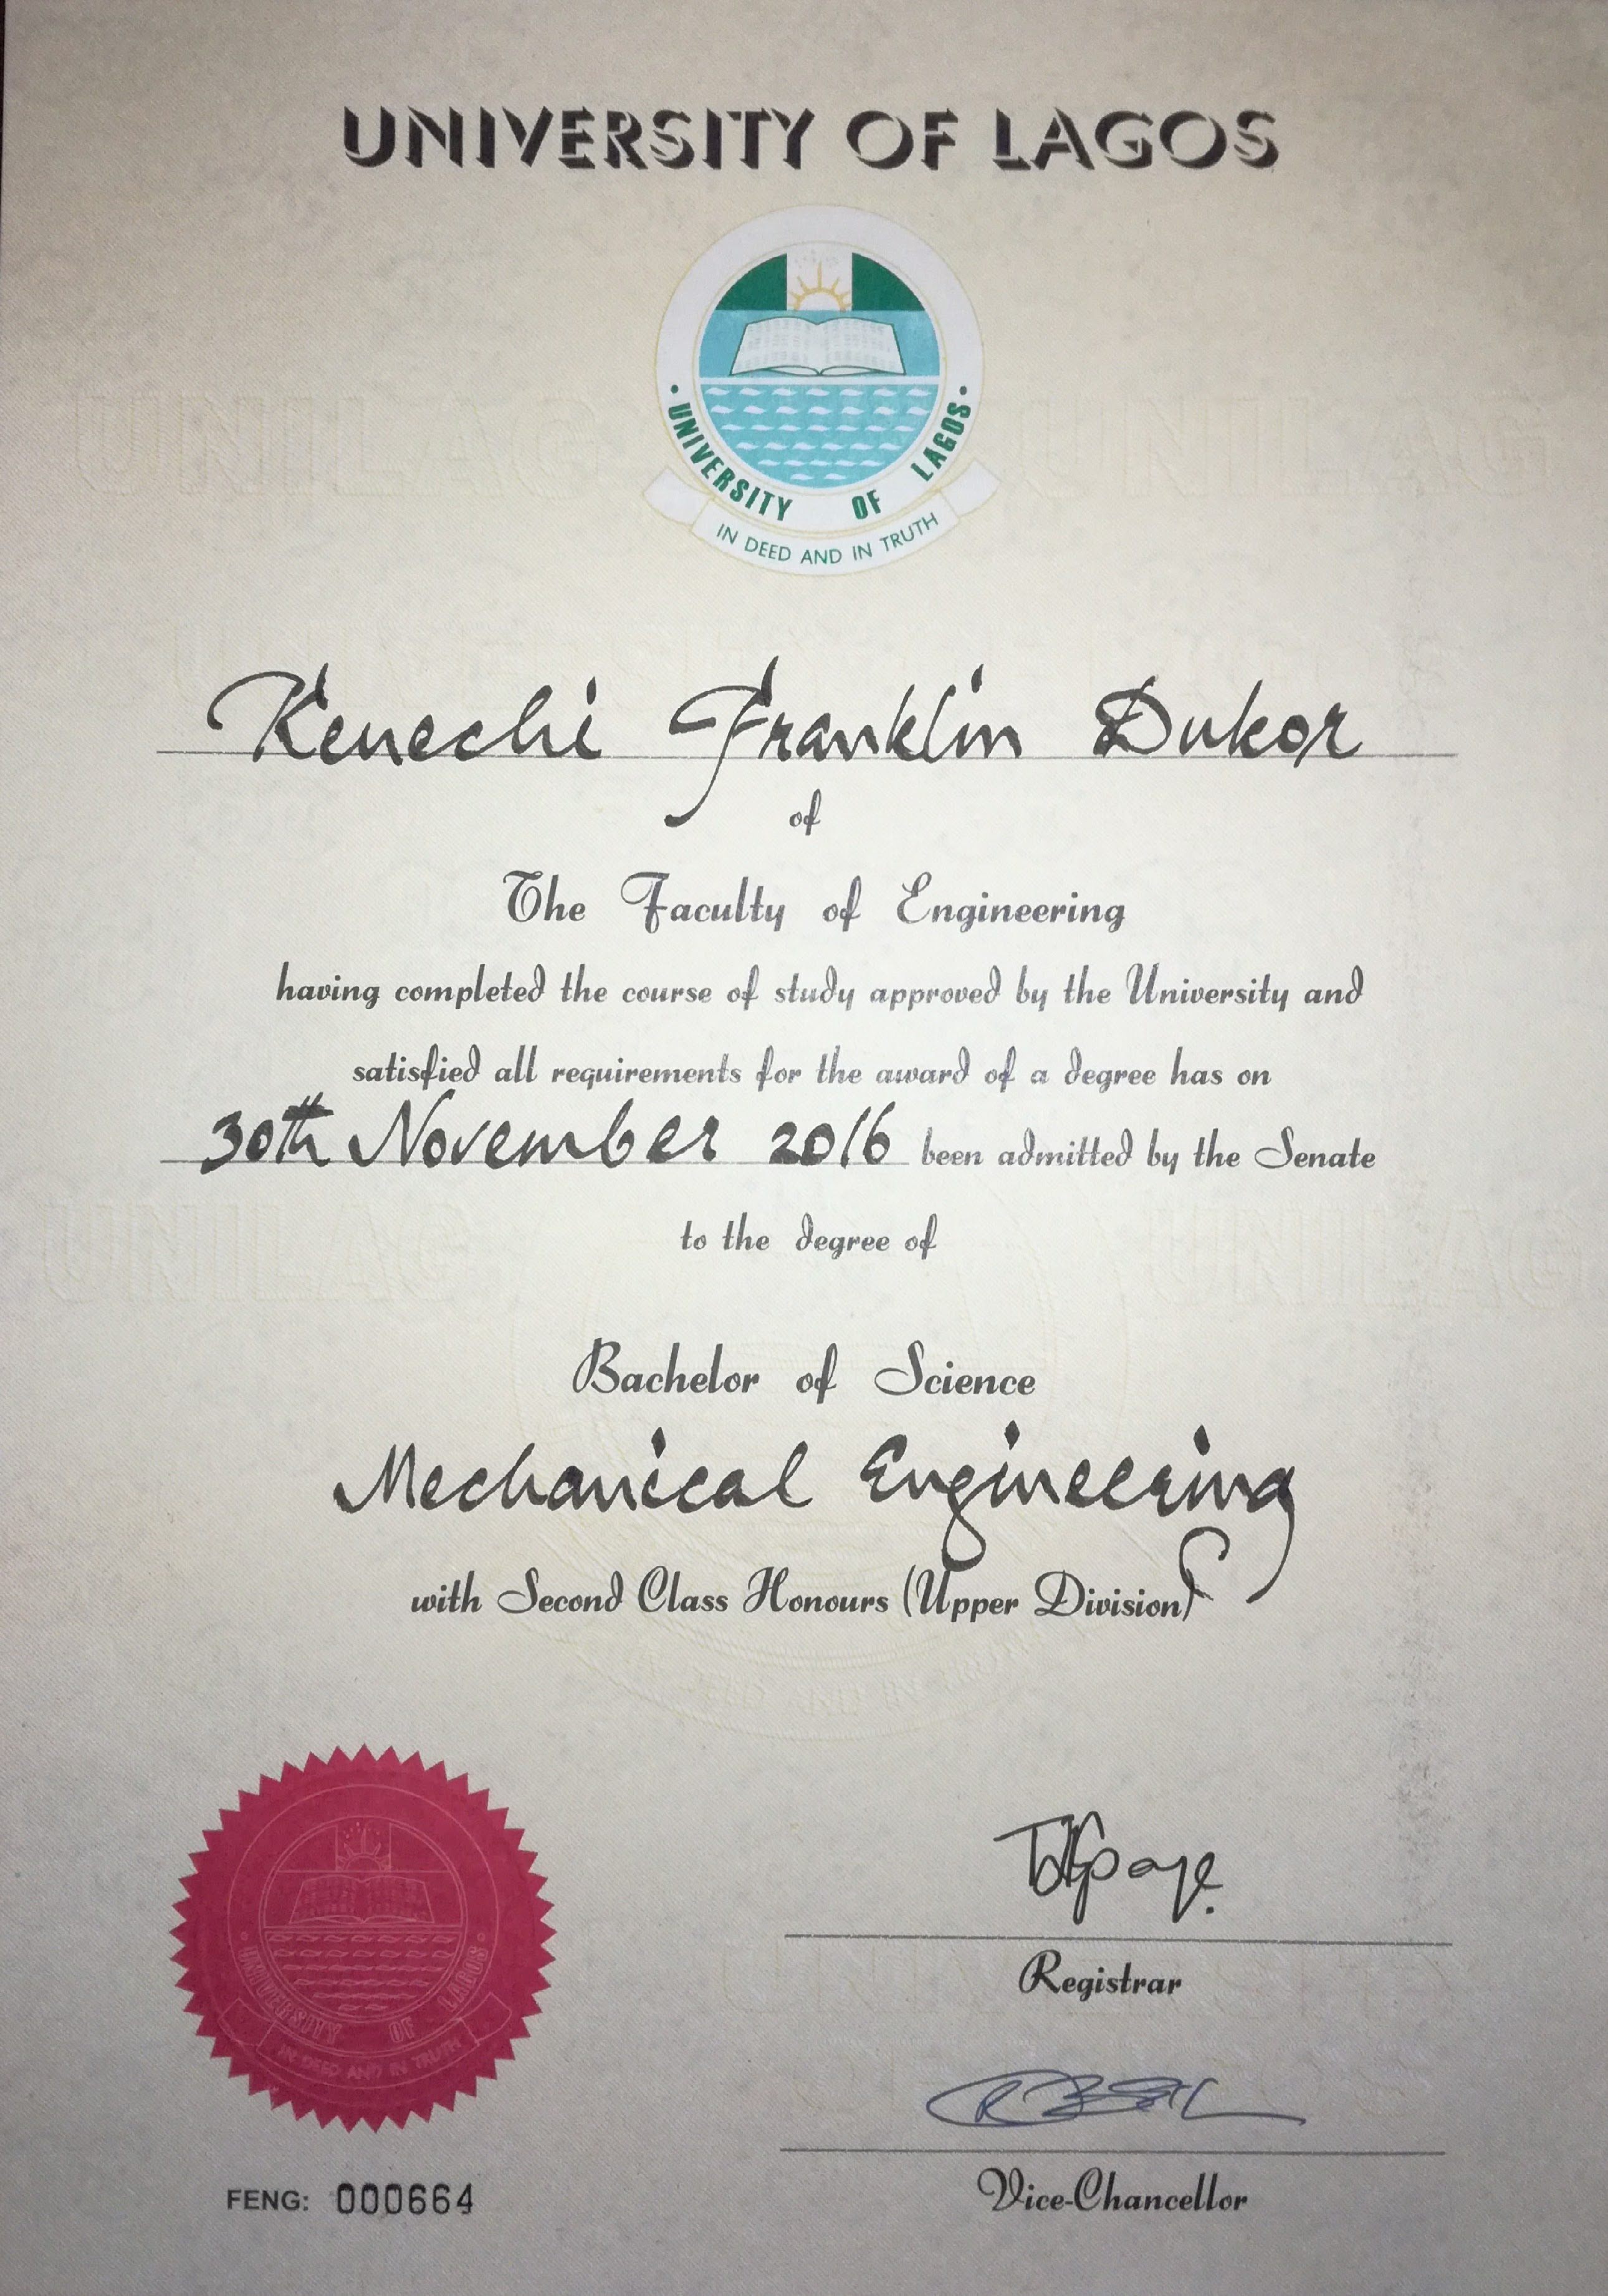 UNIVERSITY OF LAGOS
UNIVERSITY OF LAGOS
IN DEED AND IN TRUTH
Kenechi Franklin Dukor
of
The Faculty of Engineering
having completed the course of study approved by the University and
satisfied all requirements for the award of a degree has on
30th November 2016 been admitted by the Senate
to the degree of
Bachelor of Science
Mechanical Engineering
with Second Class Honours (Upper Division)
UNIVERSITY OF LAGOS
IN DEED AND IN TRUTH
Registrar
FENG: 000664
Vice-Chancellor